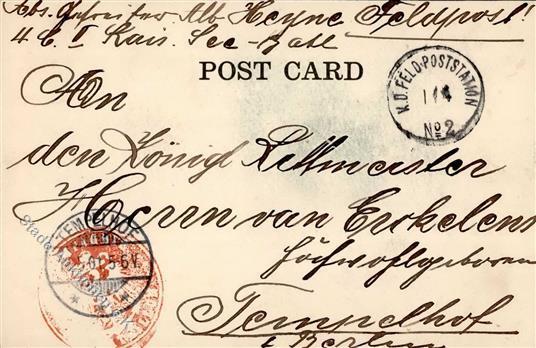 Abs. Gefreiter Alb Heyne Feldpost!
4 C. I Kais. See-Batl
POST CARD
K.D. FELD-POSTSTATION
1/4
No 2
An
den Königl
Herrn van Erckelens
Hochwohlgeboren
TEMPELHOF
5-6V.
Tempelhof
b Berlin